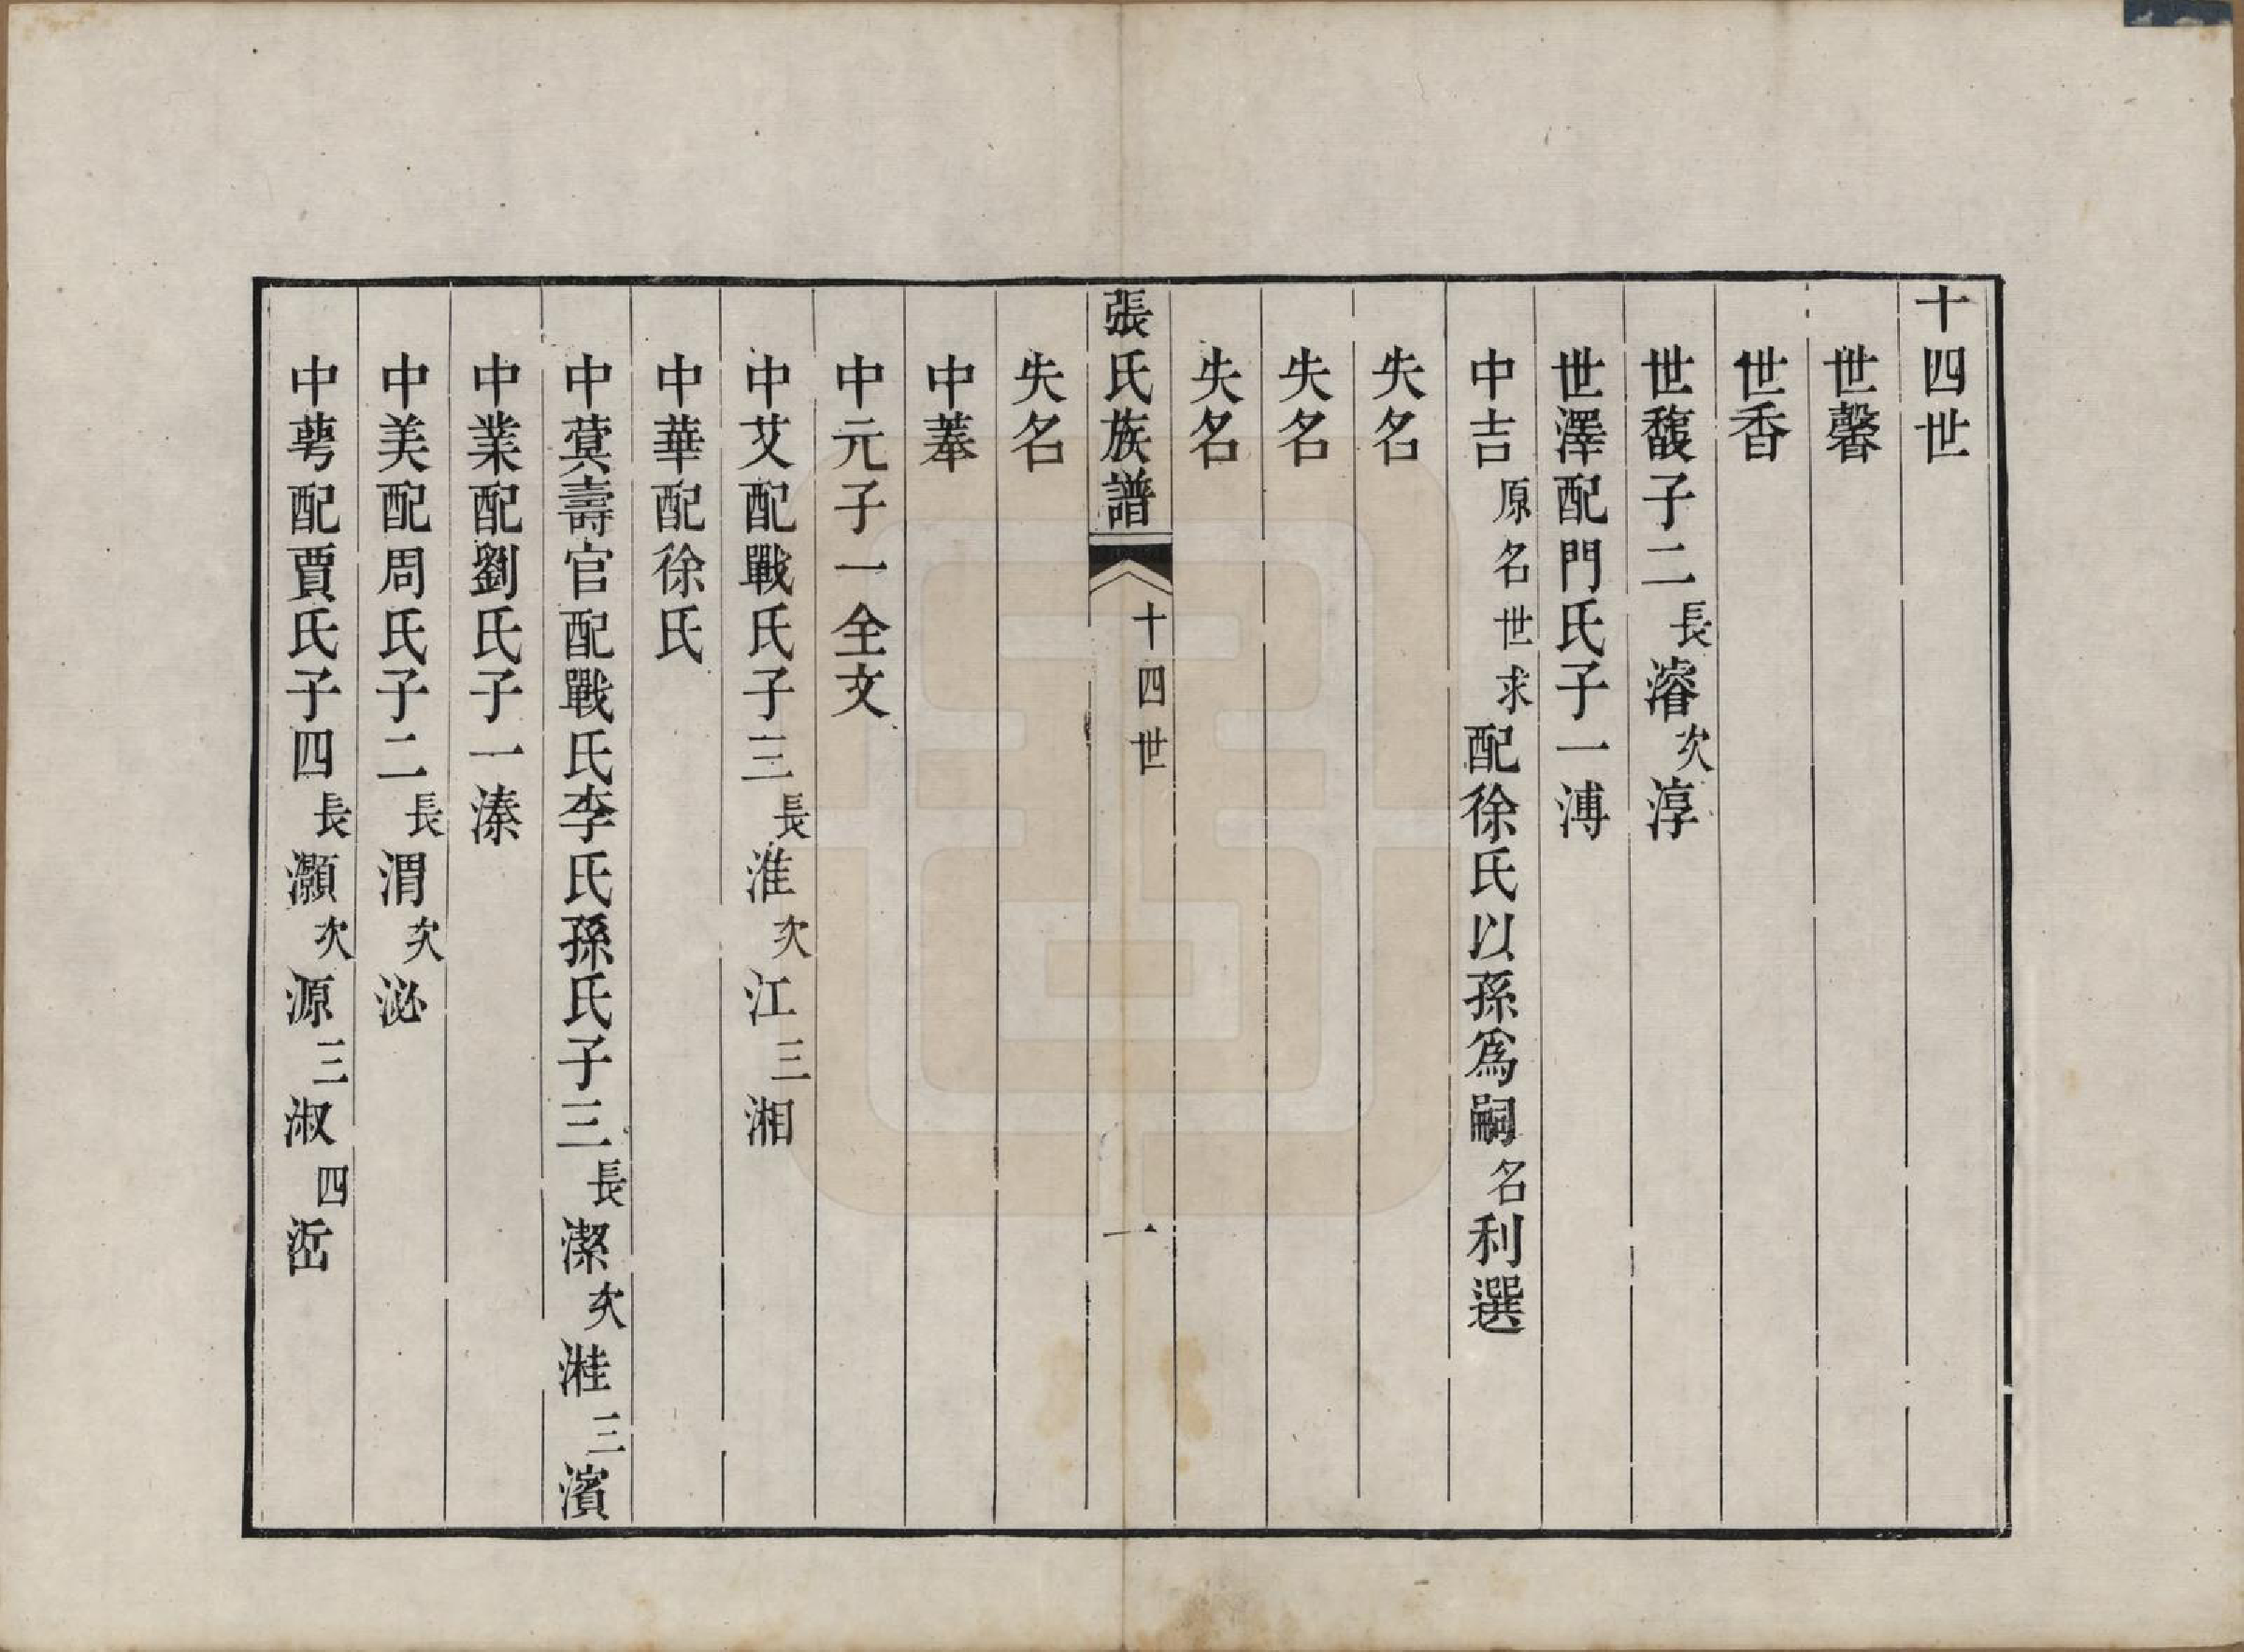 十四世
世馨
世香
世馥子二長濬次淳
世澤配門氏子一溥
中吉原名世求配徐氏以孫爲嗣名利選
失名
失名
失名
張氏族譜 十四世 一
失名
中莑
中元子一全文
中艾配戰氏子三長淮次江三湘
中華配徐氏
中蓂壽官配戰氏李氏孫氏子三長潔次溎三濱
中業配劉氏子一溱
中美配周氏子二長渭次泌
中萼配賈氏子四長灝次源三淑四